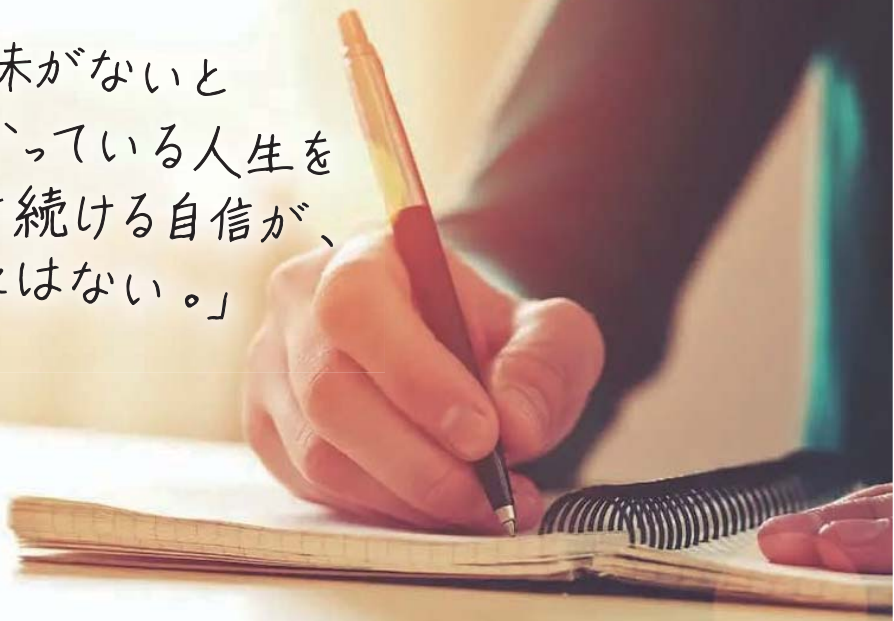 味がないと
っている人生を
続ける自信が、
はない。」